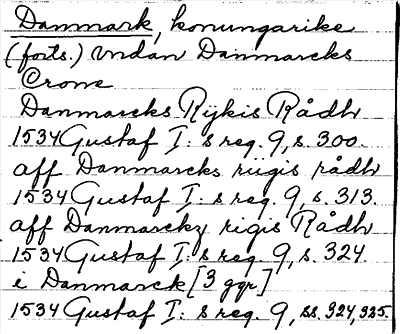 Danmark, konungarike
(forts.) Undan Danmarcks
Crone
Danmarcks Rijkis Rådh
1534 Gustaf I:s reg. 9, s. 300.
aff Danmarcks riigis rådh
1534 Gustaf I:s reg. 9, s. 313.
aff Danmarckz rigis Rådh
1534 Gustaf I:s reg. 9, s. 324.
i Danmarck [3 ggr]
1534 Gustaf I:s reg. 9, ss. 324, 325.